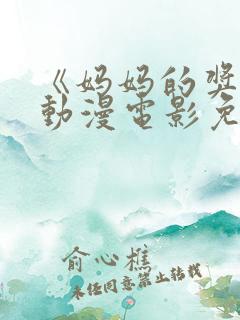 《妈妈的奖
動漫電影免
俞心樵
未经同意禁止转载